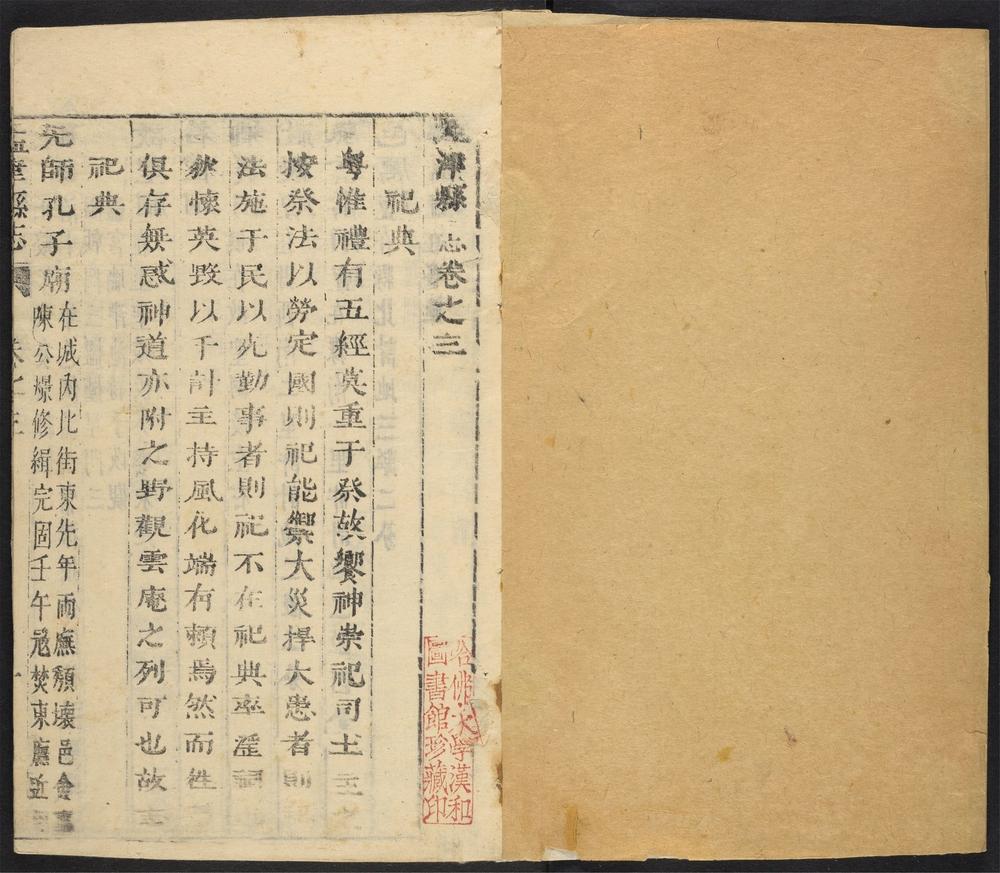 津縣志卷之三
祀典
粤惟禮有五經莫重于祭故饗神崇祀司土主之
按祭法以勞定國則祀能禦大災捍大患者則
法施于民以死勤事者則祀不在祀典率淫祠
狄懷英毀以千計主持風化端有賴焉然而牲
俱存無惑神道亦附之野觀雲庵之列可也故志
祀典
先師孔子廟
在城內北街東先年兩廡頽壞邑
陳公壕修緝完固壬午冦焚東廡近
孟津縣志
卷之三
哈佛大學漢和
圖書館珍藏印